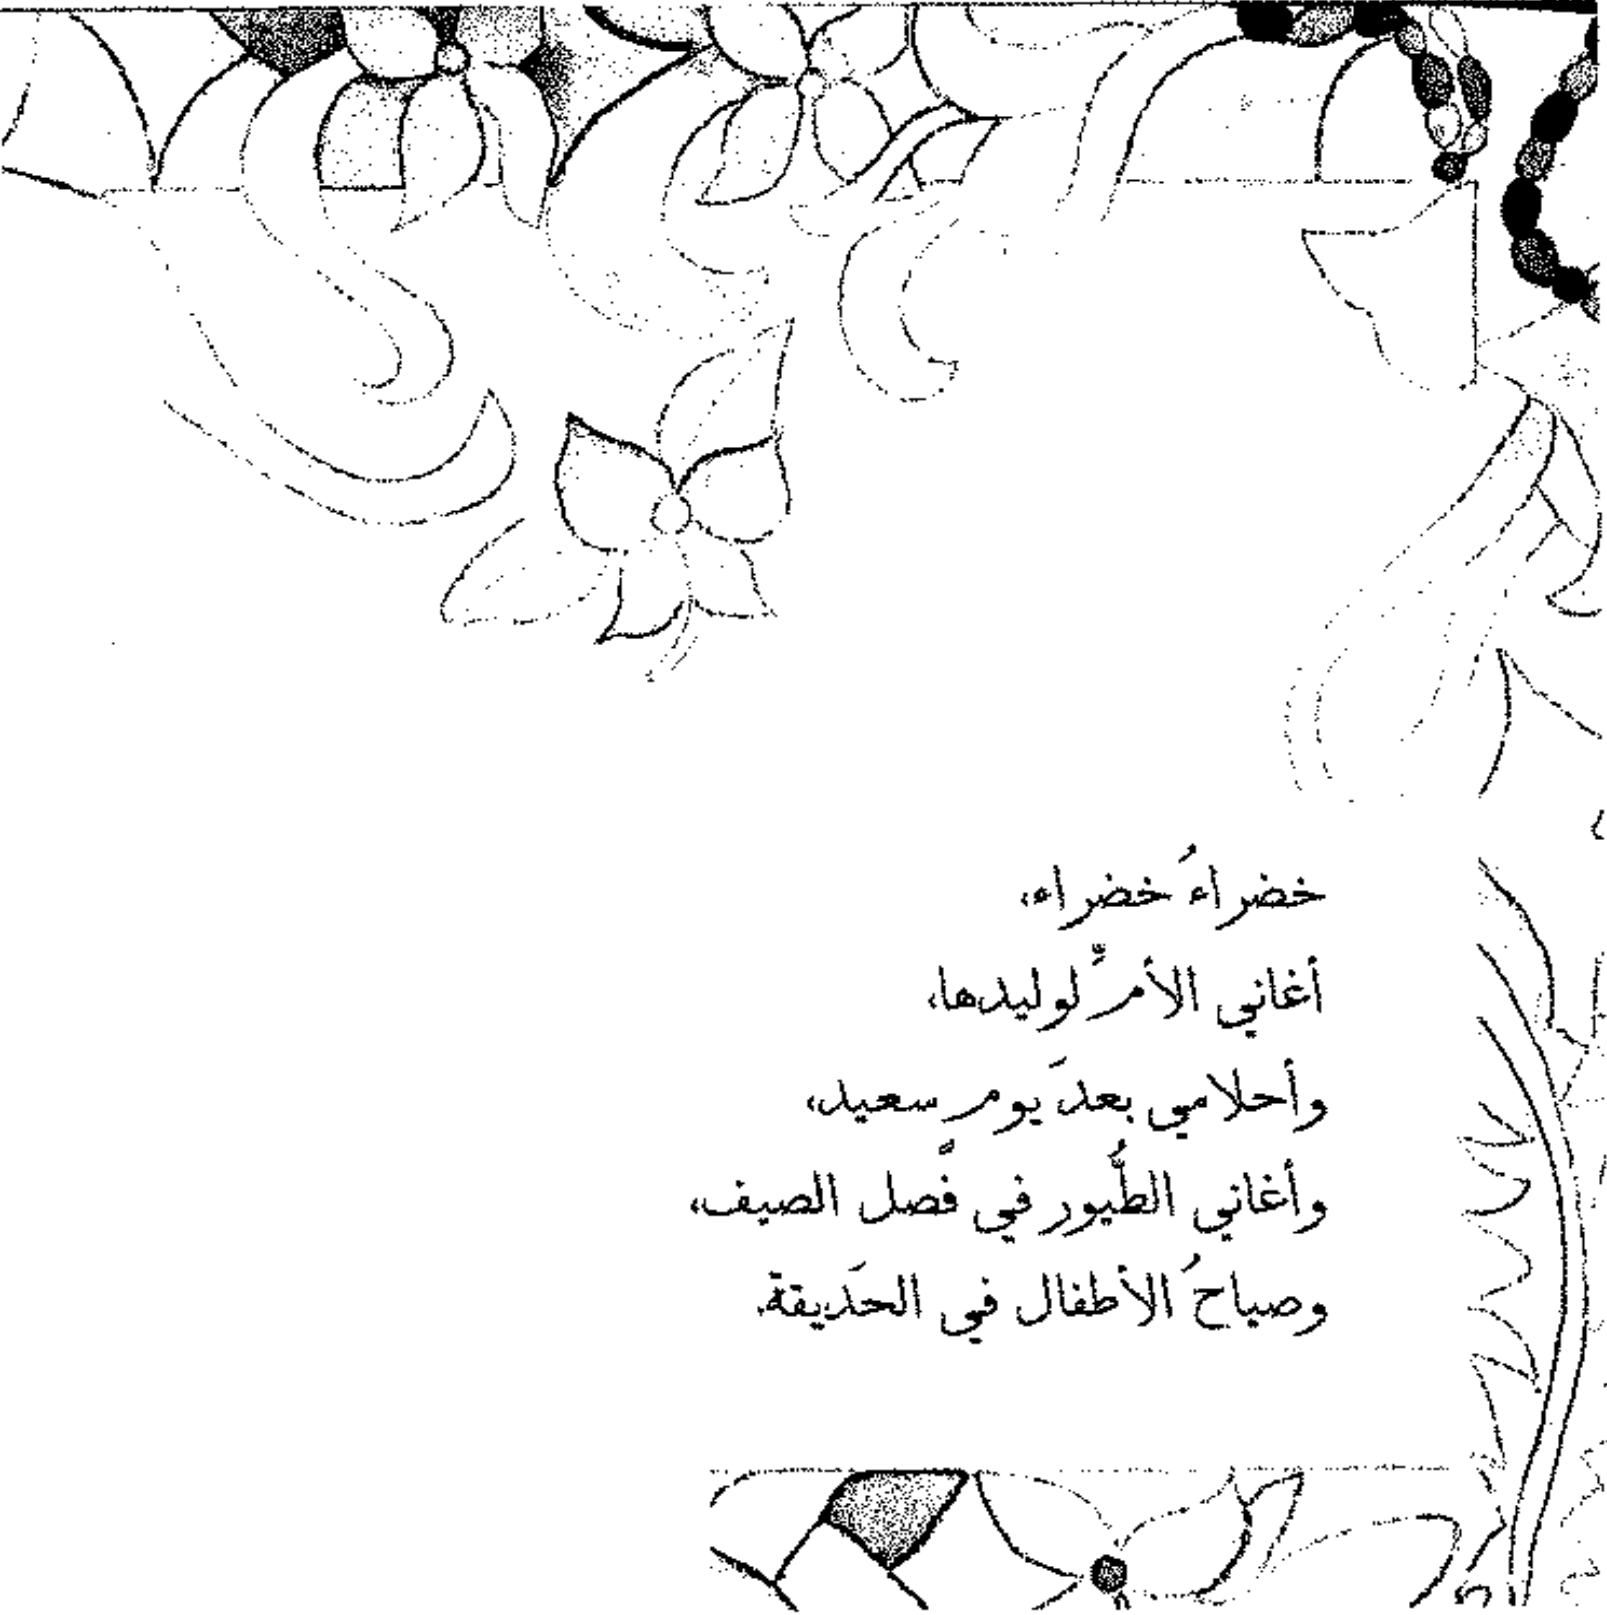 خضراءُ خضراء،
أغاني الأمِّ لوليدها،
وأحلامي بعدَ يوم سعيد،
وأغاني الطُّيور في فَصل الصيف،
وصباحُ الأطفال في الحَديقة.